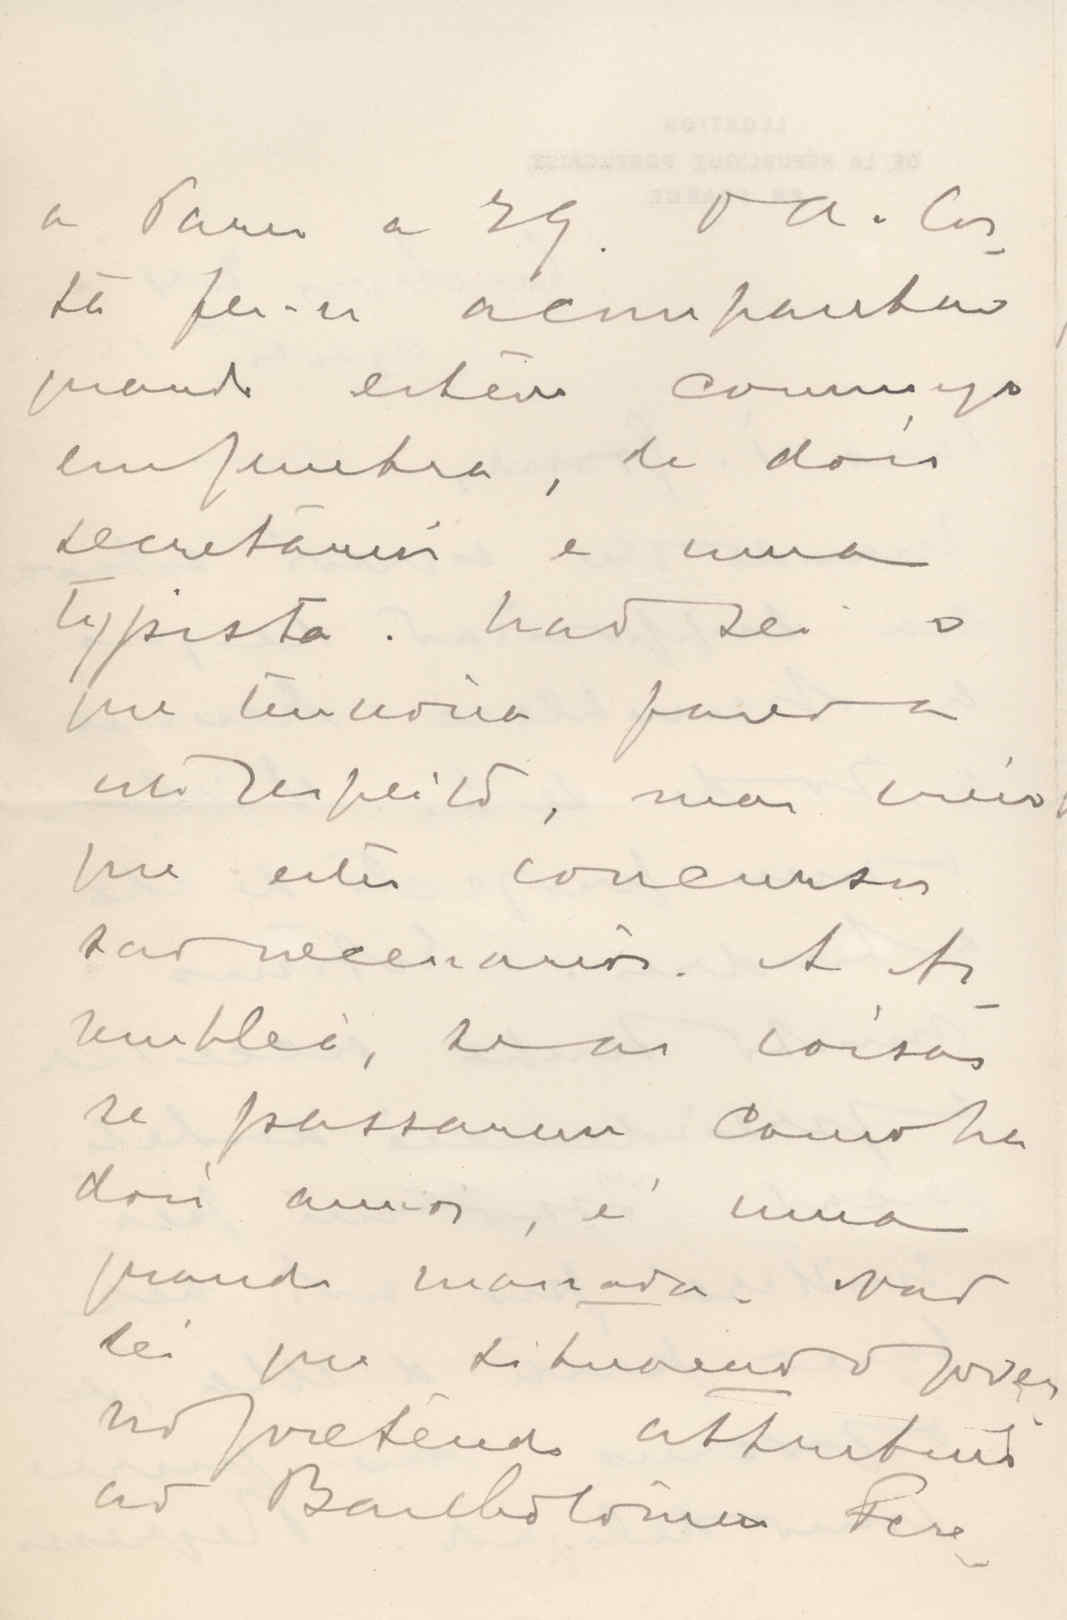 LEGATION
DE LA RÉPUBLIQUE PORTUGAISE
EN FRANCE
a Paris a 29. O A. Cos-
ta fez-se acompanhar
quando esteve commigo
em Genebra, de dois
secretarios e uma
typista. Não sei o
que tenciona fazer a
este respeito, mas creio
que estes concursos
são necessarios. A As-
semblea, se as coisas
se passarem como ha
dois annos, é uma
grande massada. Não
sei que situação o gover
no pretende attribuir
ao Bartholomeu Fere-